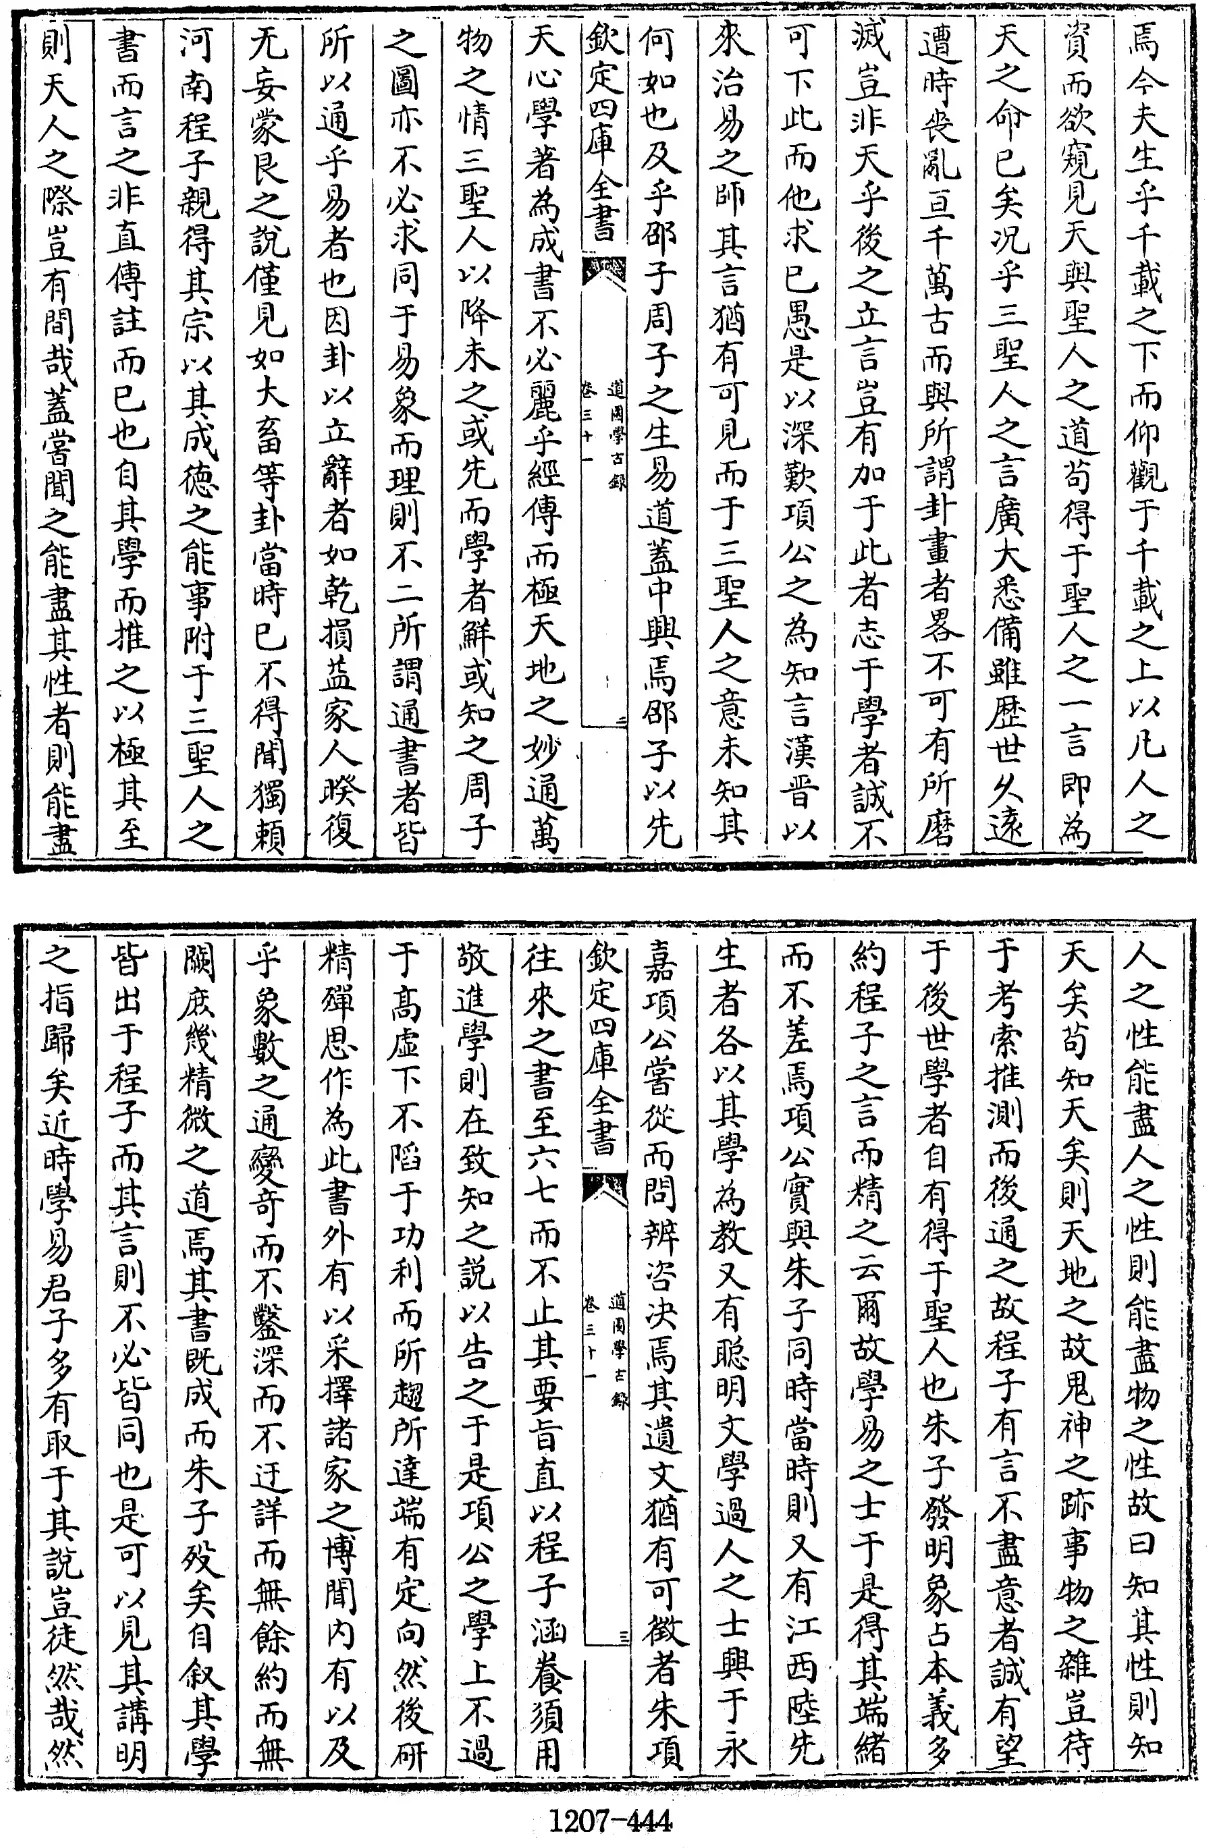 焉今夫生乎千載之下而仰觀于千載之上以凡人之
資而欲窺見天與聖人之道苟得于聖人之一言即為
天之命已矣况乎三聖人之言廣大悉備雖歴世久遠
遭時喪亂亘千萬古而與所謂卦畫者畧不可有所磨
滅豈非天乎後之立言豈有加于此者志于學者誠不
可下此而他求已愚是以深歎項公之為知言漢晋以
來治易之師其言猶有可見而于三聖人之意未知其
何如也及乎邵子周子之生易道蓋中興焉邵子以先
欽定四庫全書
道園學古録
卷三十一
二
天心學著為成書不必麗乎經傳而極天地之妙通萬
物之情三聖人以降未之或先而學者鮮或知之周子
之圖亦不必求同于易象而理則不二所謂通書者皆
所以通乎易者也因卦以立辭者如乾損益家人暌復
无妄蒙艮之說僅見如大畜等卦當時已不得聞獨頼
河南程子親得其宗以其成德之能事附于三聖人之
書而言之非直傳註而已也自其學而推之以極其至
則天人之際豈有間哉蓋嘗聞之能盡其性者則能盡
人之性能盡人之性則能盡物之性故曰知其性則知
天矣苟知天矣則天地之故鬼神之跡事物之雜豈待
于考索推測而後通之故程子有言不盡意者誠有望
于後世學者自有得于聖人也朱子發明象占本義多
約程子之言而精之云爾故學易之士于是得其端緒
而不差焉項公實與朱子同時當時則又有江西陸先
生者各以其學為教又有聰明文學過人之士興于永
嘉項公嘗從而問辨咨决焉其遺文猶有可徵者朱項
欽定四庫全書
道園學古録
卷三十一
三
往來之書至六七而不止其要旨直以程子涵養須用
敬進學則在致知之說以告之于是項公之學上不過
于高虛下不陷于功利而所趨所達端有定向然後研
精殫思作為此書外有以采擇諸家之博聞内有以及
乎象數之通變奇而不鑿深而不迂詳而無餘約而無
闕庶幾精微之道焉其書既成而朱子殁矣自叙其學
皆出于程子而其言則不必皆同也是可以見其講明
之指歸矣近時學易君子多有取于其說豈徒然哉然
1207-444